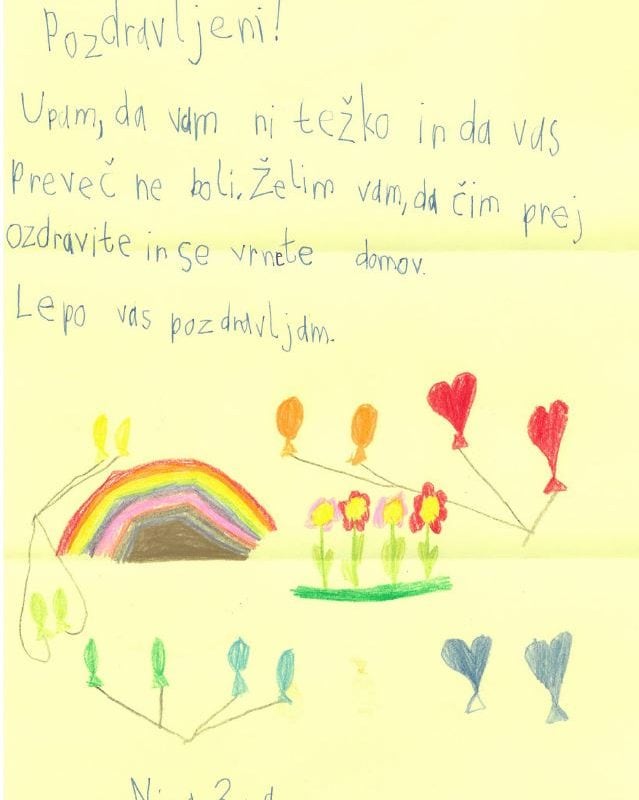 Pozdravljeni!
Upam, da vam ni težko in da vas
preveč ne boli. Želim vam, da čim prej
ozdravite in se vrnete domov.
Lepo vas pozdravljam.